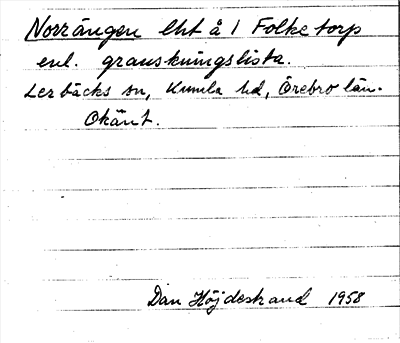 Norrängen lht å 1 Folketorp
enl. granskningslista.
Lerbäcks sn, Kumla hd, Örebro län.
Okänt.
Dan Höjdestrand 1958